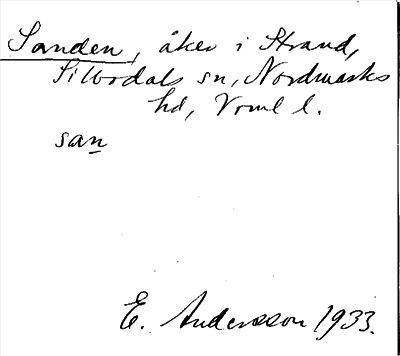 Sanden, åker i Strand,
Silbodals sn, Nordmarks
hd, Vrml l.
san
E. Andersson 1933.